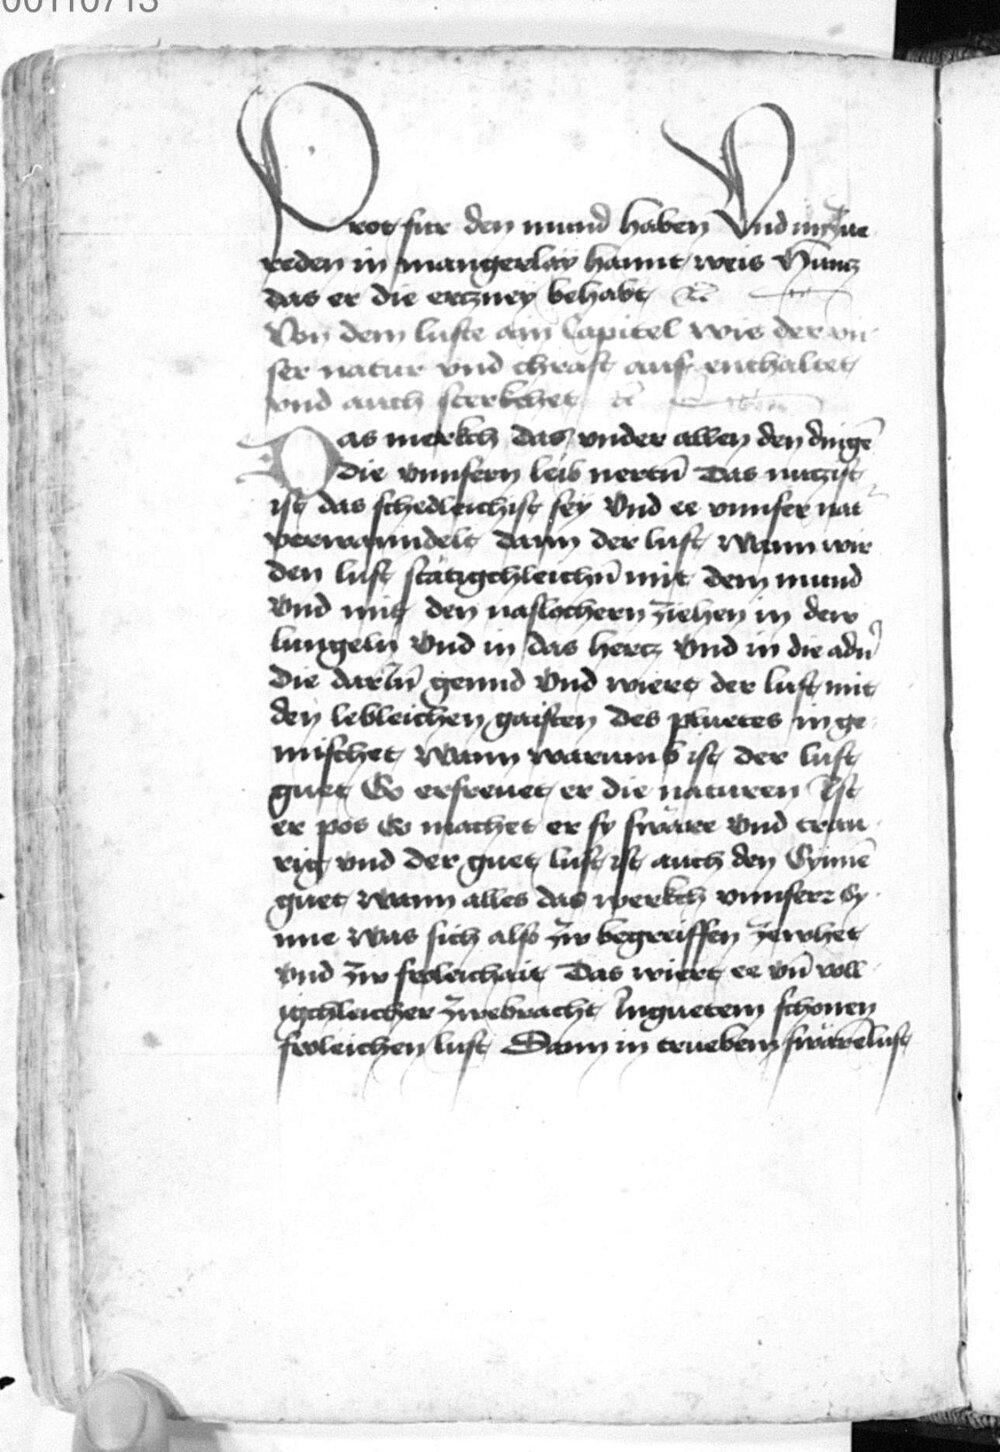 00110713
Prot fur den mund haben Vnd im zue
reden in mangerlay hannt weis Vnntz
das er die ertzney behabt etc
Von dem lufte ain Capitel wie der vn
ser natur vnd chraft auf enthaltet
vnd auch sterkchet etc
Das merkch das vnder allen den dingē
die vnnsern leib nertn̄ Das nutzist
ist das schedleichist sey Vnd ee vnnser nat
verwanndelt dann der luft Wann wir
den luft stätigchleichn̄ mit dem mund
Vnd mit den naslochern ziehen in dew
lungeln Vnd in das hertz Vnd in die adn̄
die darin̄ gennd Vnd wiert der luft mit
den lebleichen gaisten des pluetes in ge
mischet Wann warumb ist der luft
guet So erfrewet er die naturen Ist
er pos So machet er sy swäre Vnd trau
rig vnd der guet luft ist auch den Synnē
guet Wann alles das werkch vnnserr Sy
nne Was sich also zw begreiffen zewhet
Vnd zw froleichait Das wiert ee vn̄ voll
igchleicher zwebracht In guetem schonen
froleichen luft Dann in truebem swärē luft